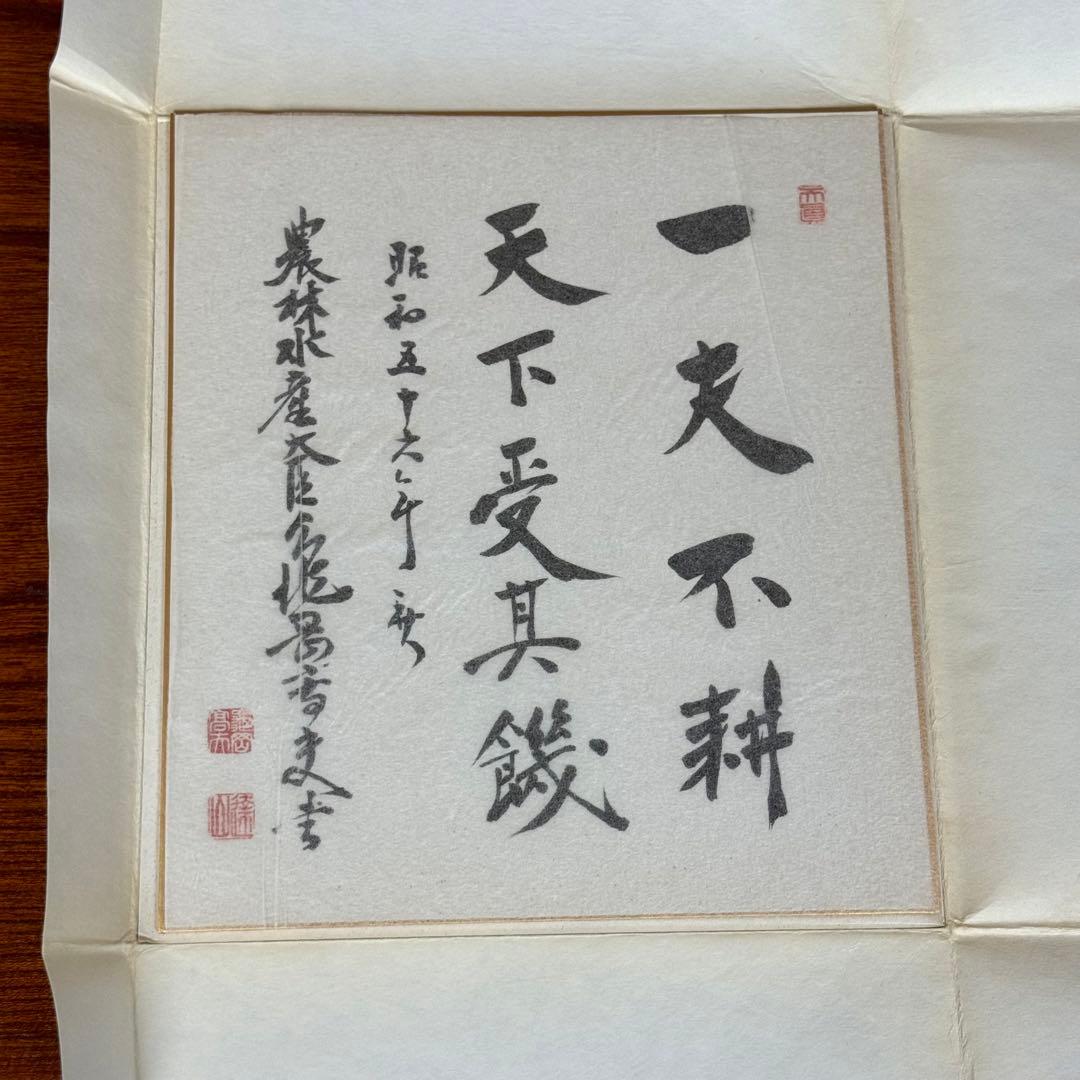 一夫不耕
天下受其饑
昭和五十六年
農林水産大臣亀岡高夫書